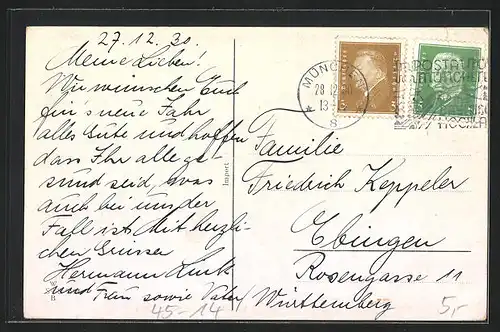 27.12.30.
Meine Lieben!
Wir wünschen Euch
für's neue Jahr
alles Gute und hoffen
dass Ihr alle ge-
sund seid, was
auch bei uns der
Fall ist. Mit herzli-
chen Grüssen
Hermann Link
und Frau sowie Vater
45-14
Import
W
B
MÜNCHEN
28.12
13-
8
Familie
Friedrich Keppeler
Ebingen
Rosengasse 11
Württemberg
5,-